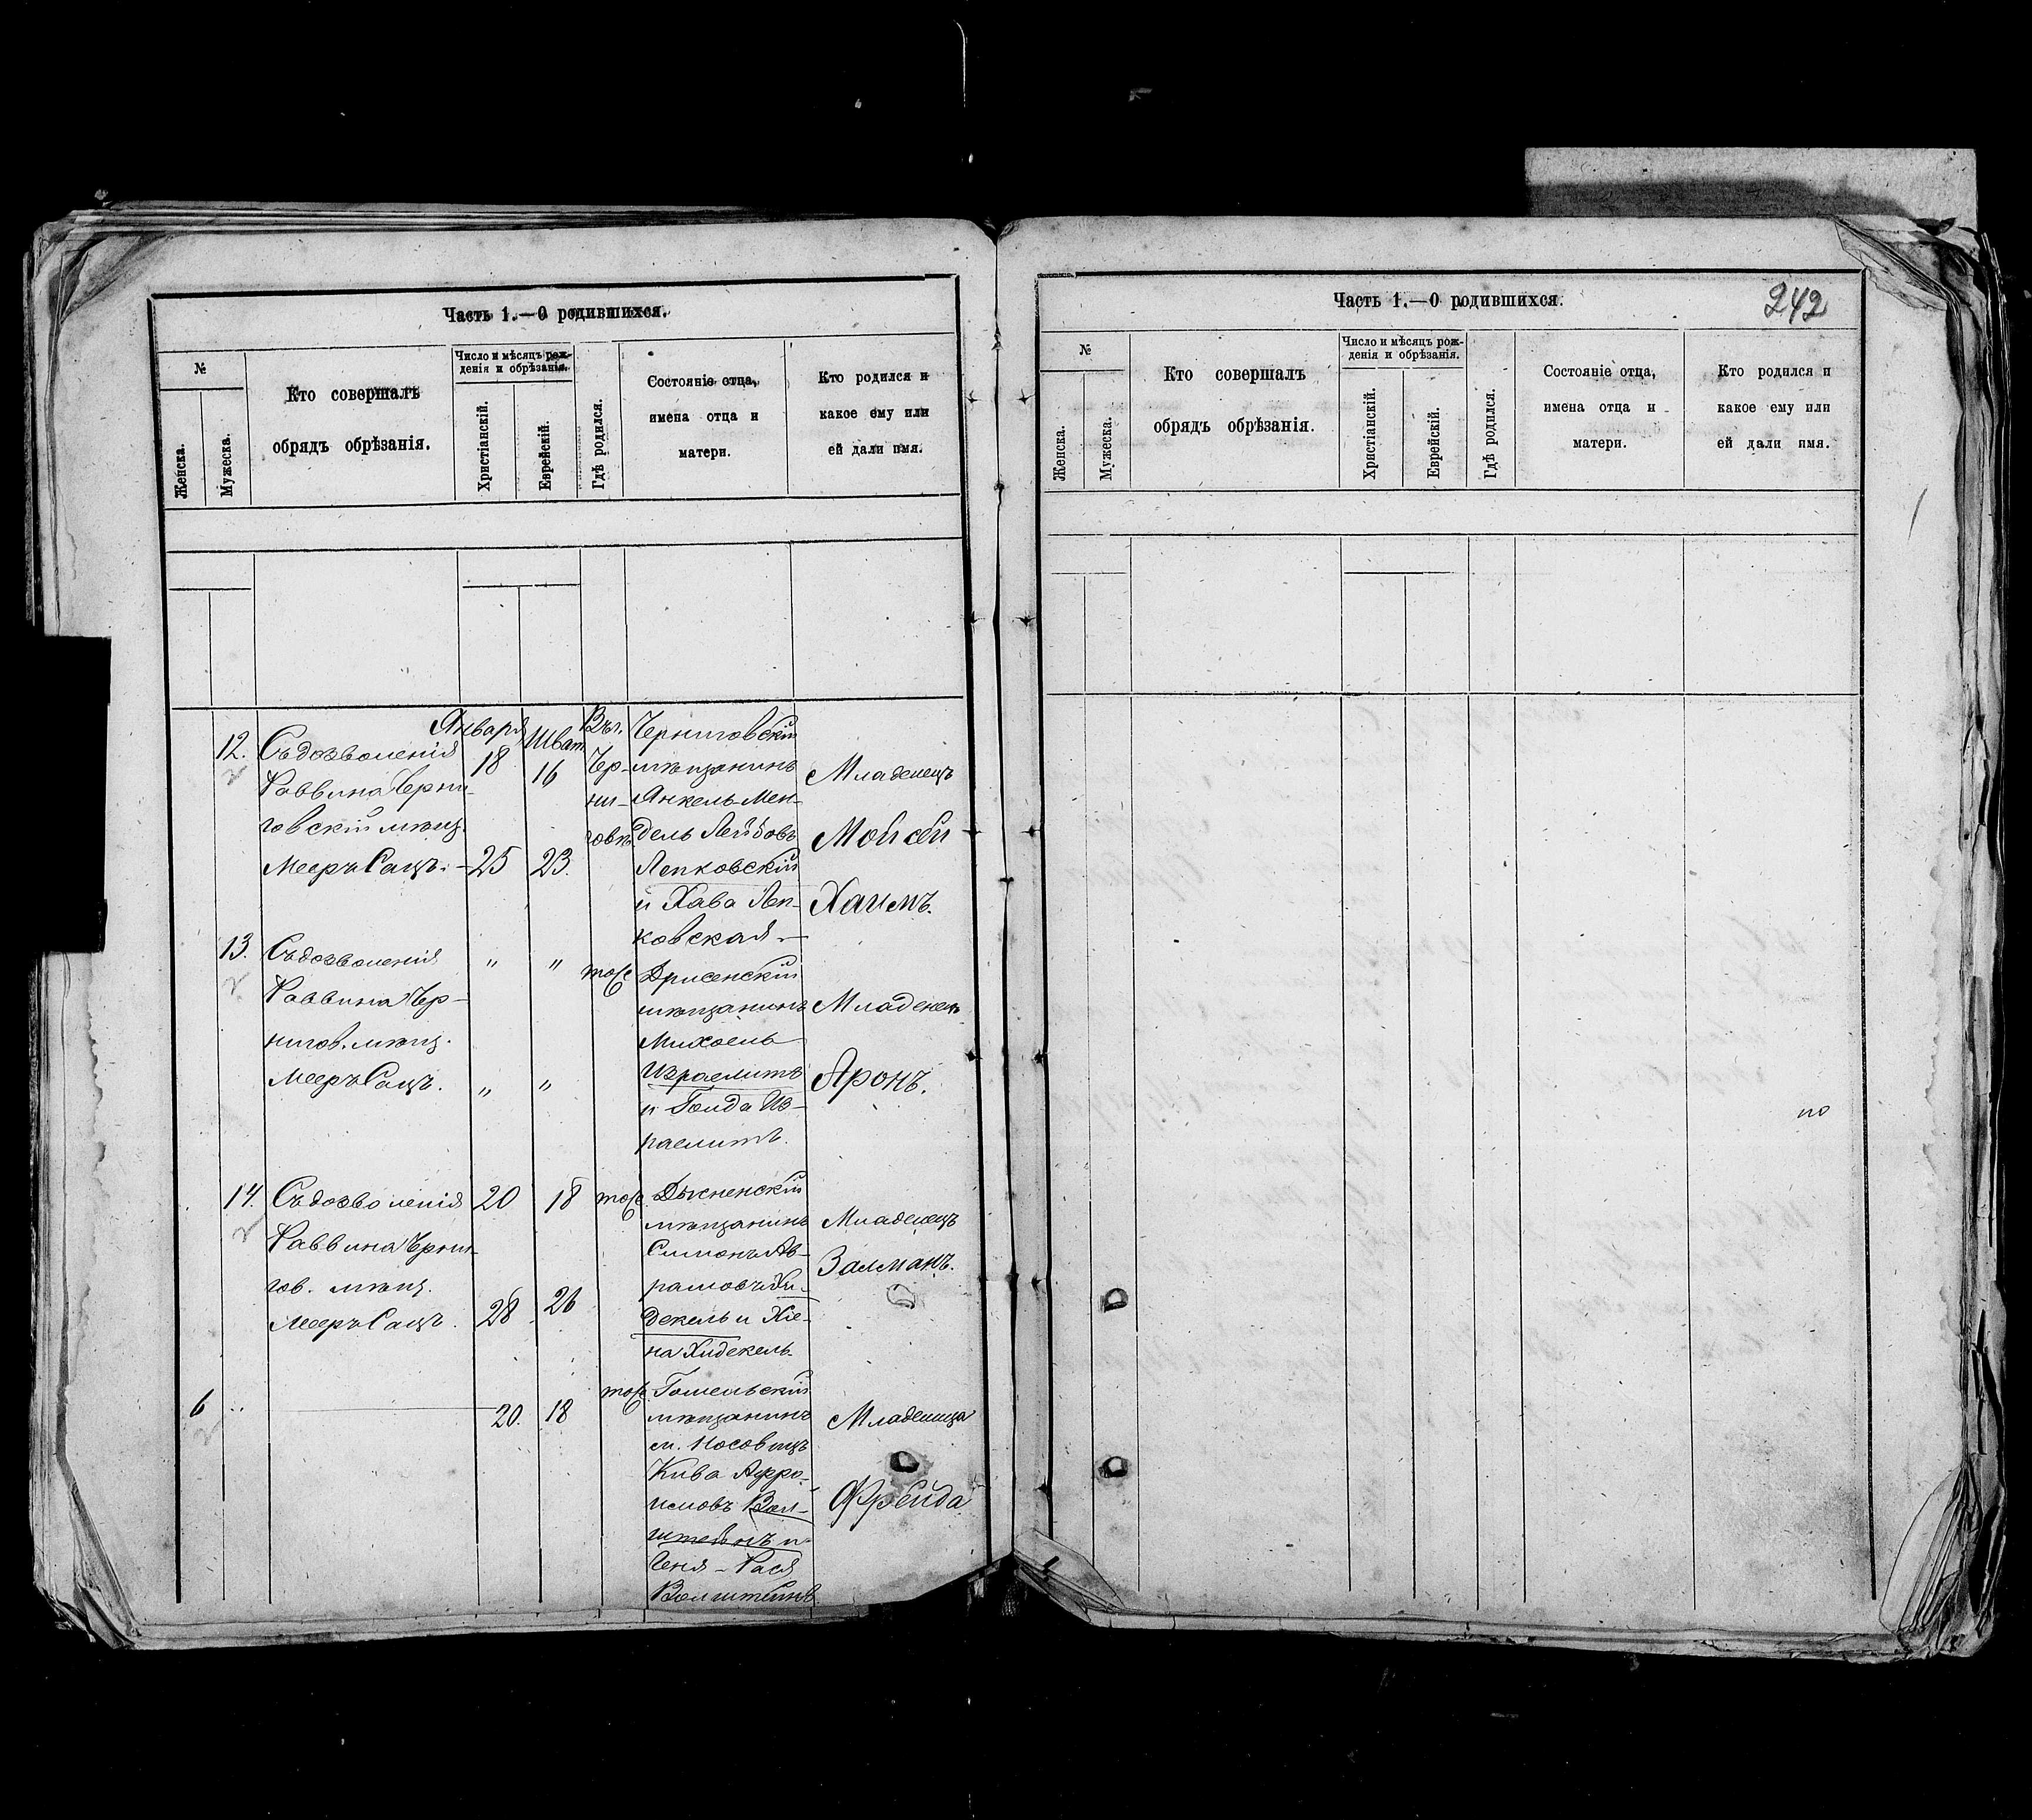 Часть 1.—О родившихся.
№
Женска.
Мужеска.
Кто совершалъ
обрядъ обрѣзанія.
Число и мѣсяцъ рож-
денія и обрѣзанія.
Христіанскій.
Еврейскій.
Гдѣ родился.
Состояніе отца,
имена отца и
матери.
Кто родился и
какое ему или
ей дали имя.
12.
Съ дозволенія
Раввина Черни-
говскій мѣщ.
Мееръ Сацъ. —
Января
18
25
Шват.
16
23.
Въ г.
Чер-
ни-
говѣ
Черниговскій
мѣщанинъ
Янкель-Мен-
дель Лейбовъ
Лепковскій
и Хава Леп-
ковская —
Младенецъ
Мойсей
Хаимъ.
13.
Съ дозволенія
Раввина Чер-
нигов. мѣщ.
Мееръ Сацъ.
" "
" "
тоже
Дрисенскій
мѣщанинъ
Михоель
Израелитъ
и Голда Из-
раелитъ.
Младенецъ
Аронъ.
14.
Съ дозволенія
Раввина Черни-
гов. мѣщ.
Мееръ Сацъ.
20
28
18
26
тоже
Дисненскій
мѣщанинъ
Симонъ Аб-
рамовъ Хи-
декель и Хіе-
на Хидекель.
Младенецъ
Залманъ.
6
20.
18
тоже
Гомельскій
мѣщанинъ
м. Носовичъ
Кива
Вол-
штейнъ и
Геня-Рася
Волштейнъ
Младеница
Фрейда
Часть 1.—О родившихся.
242
№
Женска.
Мужеска.
Кто совершалъ
обрядъ обрѣзанія.
Число и мѣсяцъ рож-
денія и обрѣзанія.
Христіанскій.
Еврейскій.
Гдѣ родился.
Состояніе отца,
имена отца и
матери.
Кто родился и
какое ему или
ей дали имя.